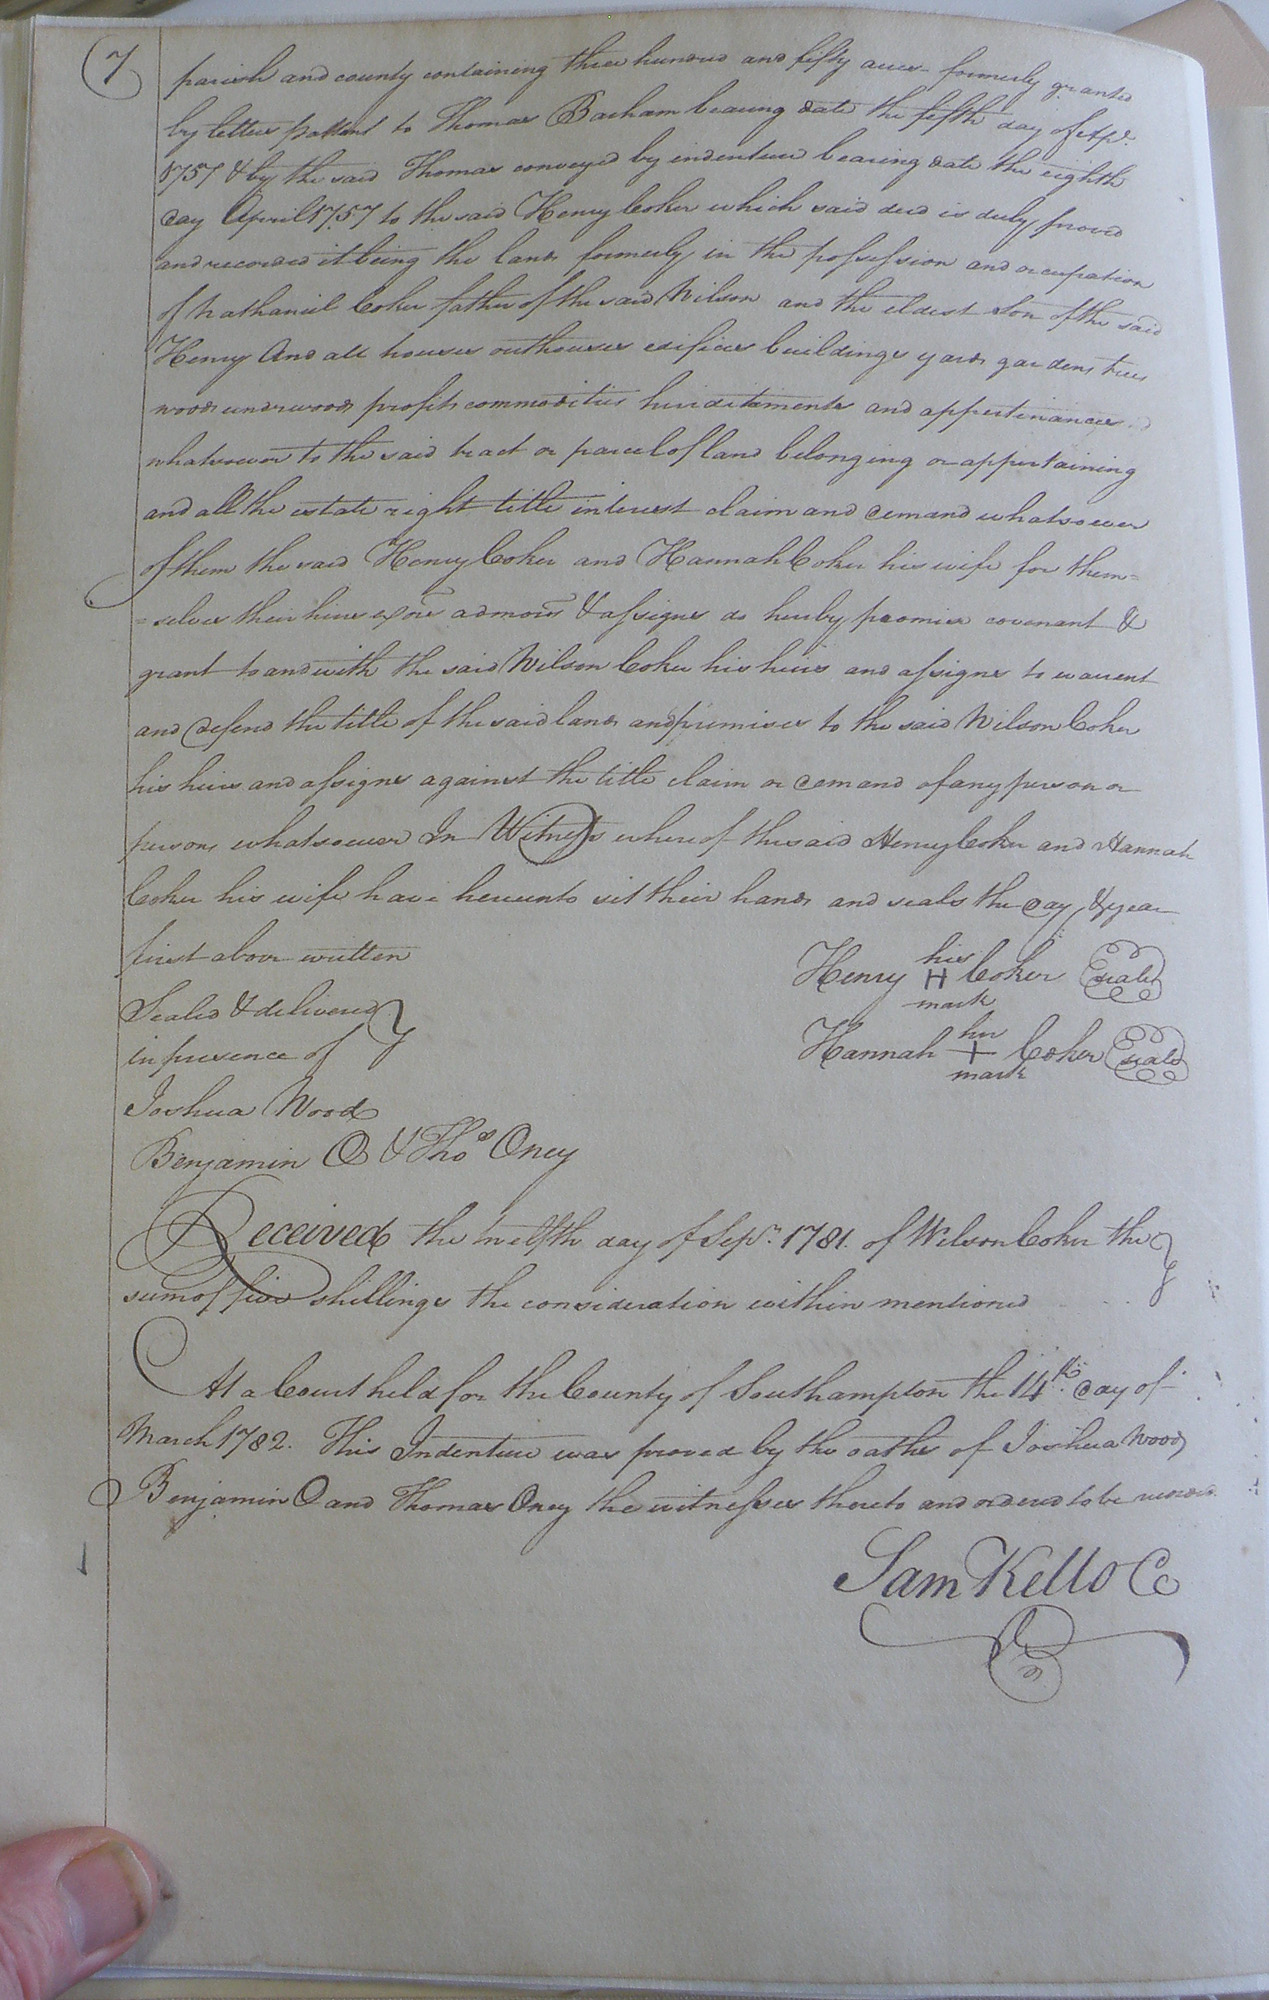 7
parish and county containing three hundred and fifty acres formerly granted
by letters pattent to Thomas Barham bearing date the fifth day of Apr.
1757 & by the said Thomas conveyed by indenture bearing date the eighth
day April 1757 to the said Henry Coker which said deed is duly proved
and recorded it being the lands formerly in the possession and occupation
of Nathaniel Coker father of the said Wilson and the eldest Son of the said
Henry And all houses outhouses edifices buildings yards gardens trees
woods underwoods profits commodities heriditements and appertinances
whatsoever to the said tract or parcel of land belonging or appertaining
and all the estate right title interest claim and demand whatsoever
of them the said Henry Coker and Hannah Coker his wife for them=
=selves their heirs exors admors & assigns do herby promise covenant &
grant to and with the said Wilson Coker his heirs and assigns to warrent
and defend the title of the said lands and premises to the said Wilson Coker
his heirs and assigns against the title claim or demand of any person or
persons whatsoever In Witness whereof the said Henry Coker and Hannah
Coker his wife have hereunto set their hands and seals the day & year
first above written
Henry his H mark Coker Seal
Sealed & delivered
in presence of
Hannah her + mark Coker Seal
Joshua Wood
Benjamin O & Thos Oney
Received the twelfth day of Sepr. 1781. of Wilson Coker the
sum of five shillings the consideration within mentioned
At a Court held for the County of Southampton the 14th. day of
March 1782. This Indenture was proved by the oaths of Joshua Wood
Benjamin O and Thomas Oney the witnesses thereto and ordered to be
Sam Kello Cc